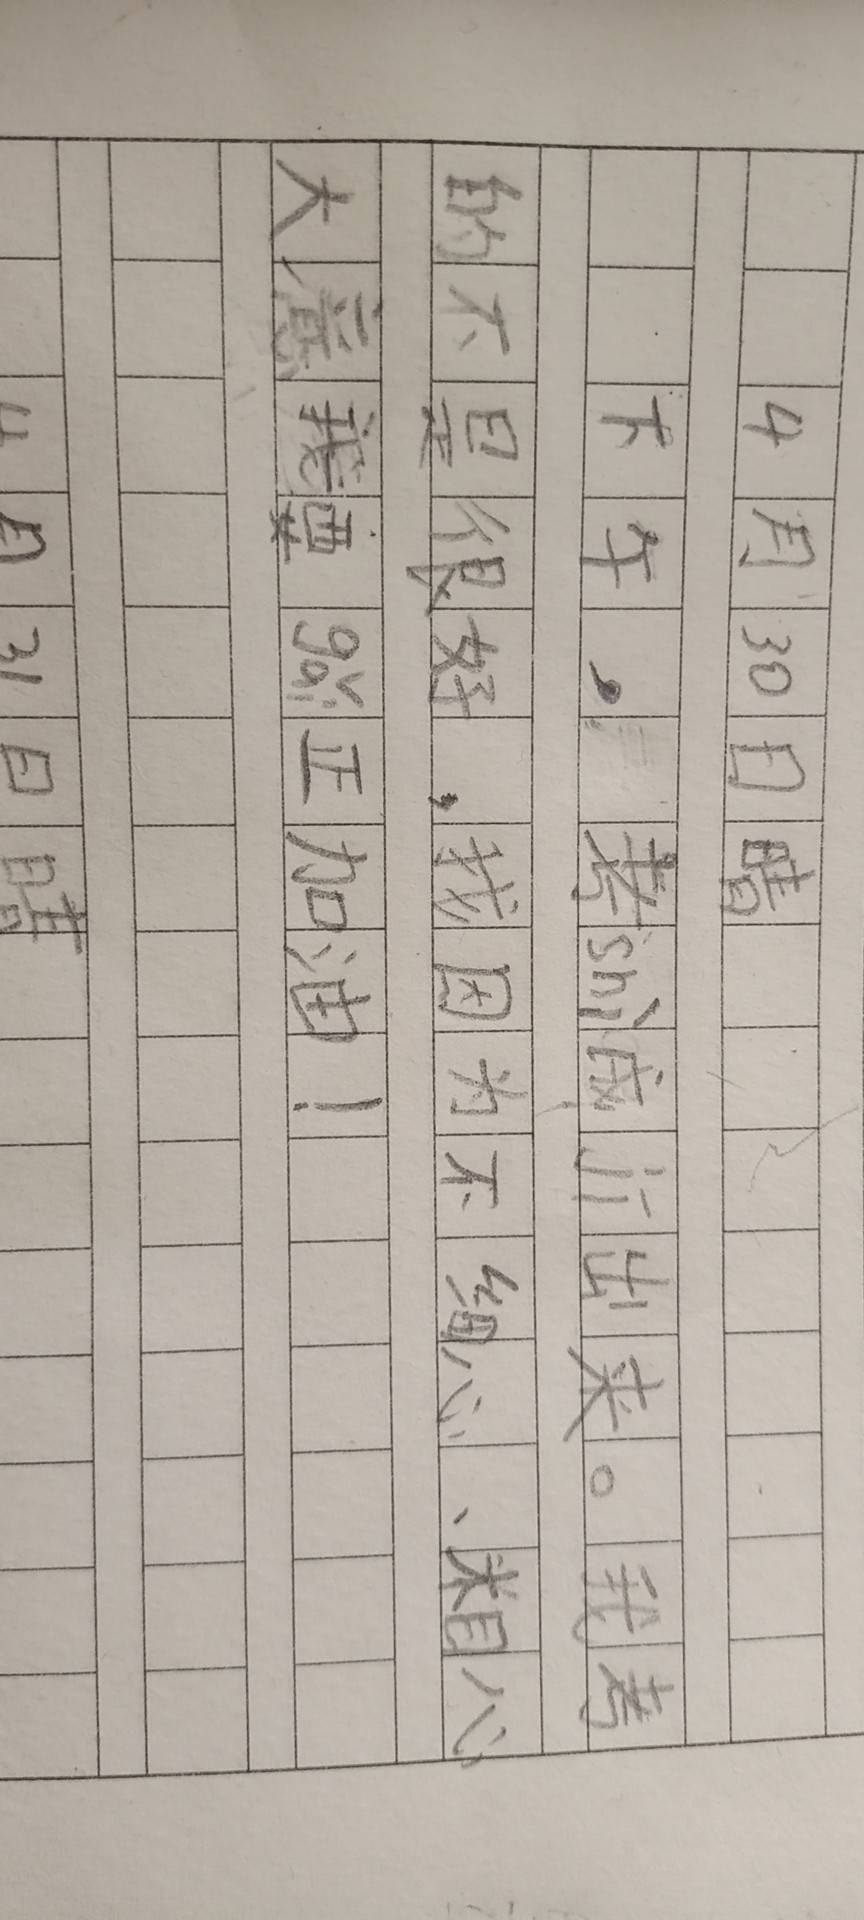 4月30日晴
下午，考shì成jì出来。我考
的不是很好，我因为不细心、粗心
大意我要gǎi正加油！
4月31日晴